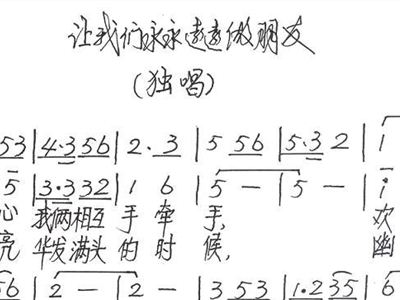 让我们永永远远做朋友
(独唱)
53 | 4·3 56 | 2· 3 | 5 56 | 5·3 2 | i
5 | 3·3 32 | 1 6 | 5 — | 5 — | i
心 我两相互 手 牵 手, 欢
亮 华发满头 的 时 候, 幽
56 | 2 — | 2 — | 3 53 | 1·2 35 | 6